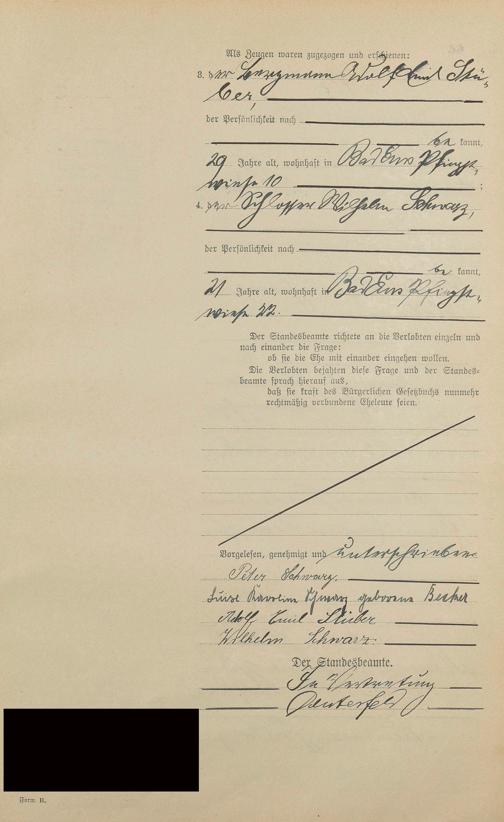 Als Zeugen waren zugezogen und erschienen:
3. der Bergmann Adolf Emil Stü-
ber,
der Persönlichkeit nach
be kannt,
29 Jahre alt, wohnhaft in Bad Ems Pfingst-
wiese 10 ;
4. der Schlosser Wilhelm Schwarz,
der Persönlichkeit nach
be kannt,
21 Jahre alt, wohnhaft in Bad Ems Pfingst-
wiese 22.
Der Standesbeamte richtete an die Verlobten einzeln und
nach einander die Frage:
ob sie die Ehe mit einander eingehen wollen.
Die Verlobten bejahten diese Frage und der Standes-
beamte sprach hierauf aus,
daß sie kraft des Bürgerlichen Gesetzbuchs nunmehr
rechtmäßig verbundene Eheleute seien.
Vorgelesen, genehmigt und unterschrieben
Peter Schwarz
Luise Karoline Schwarz geborene Becker
Adolf Emil Stüber
Wilhelm Schwarz.
Der Standesbeamte.
In Vertretung
Form. B.